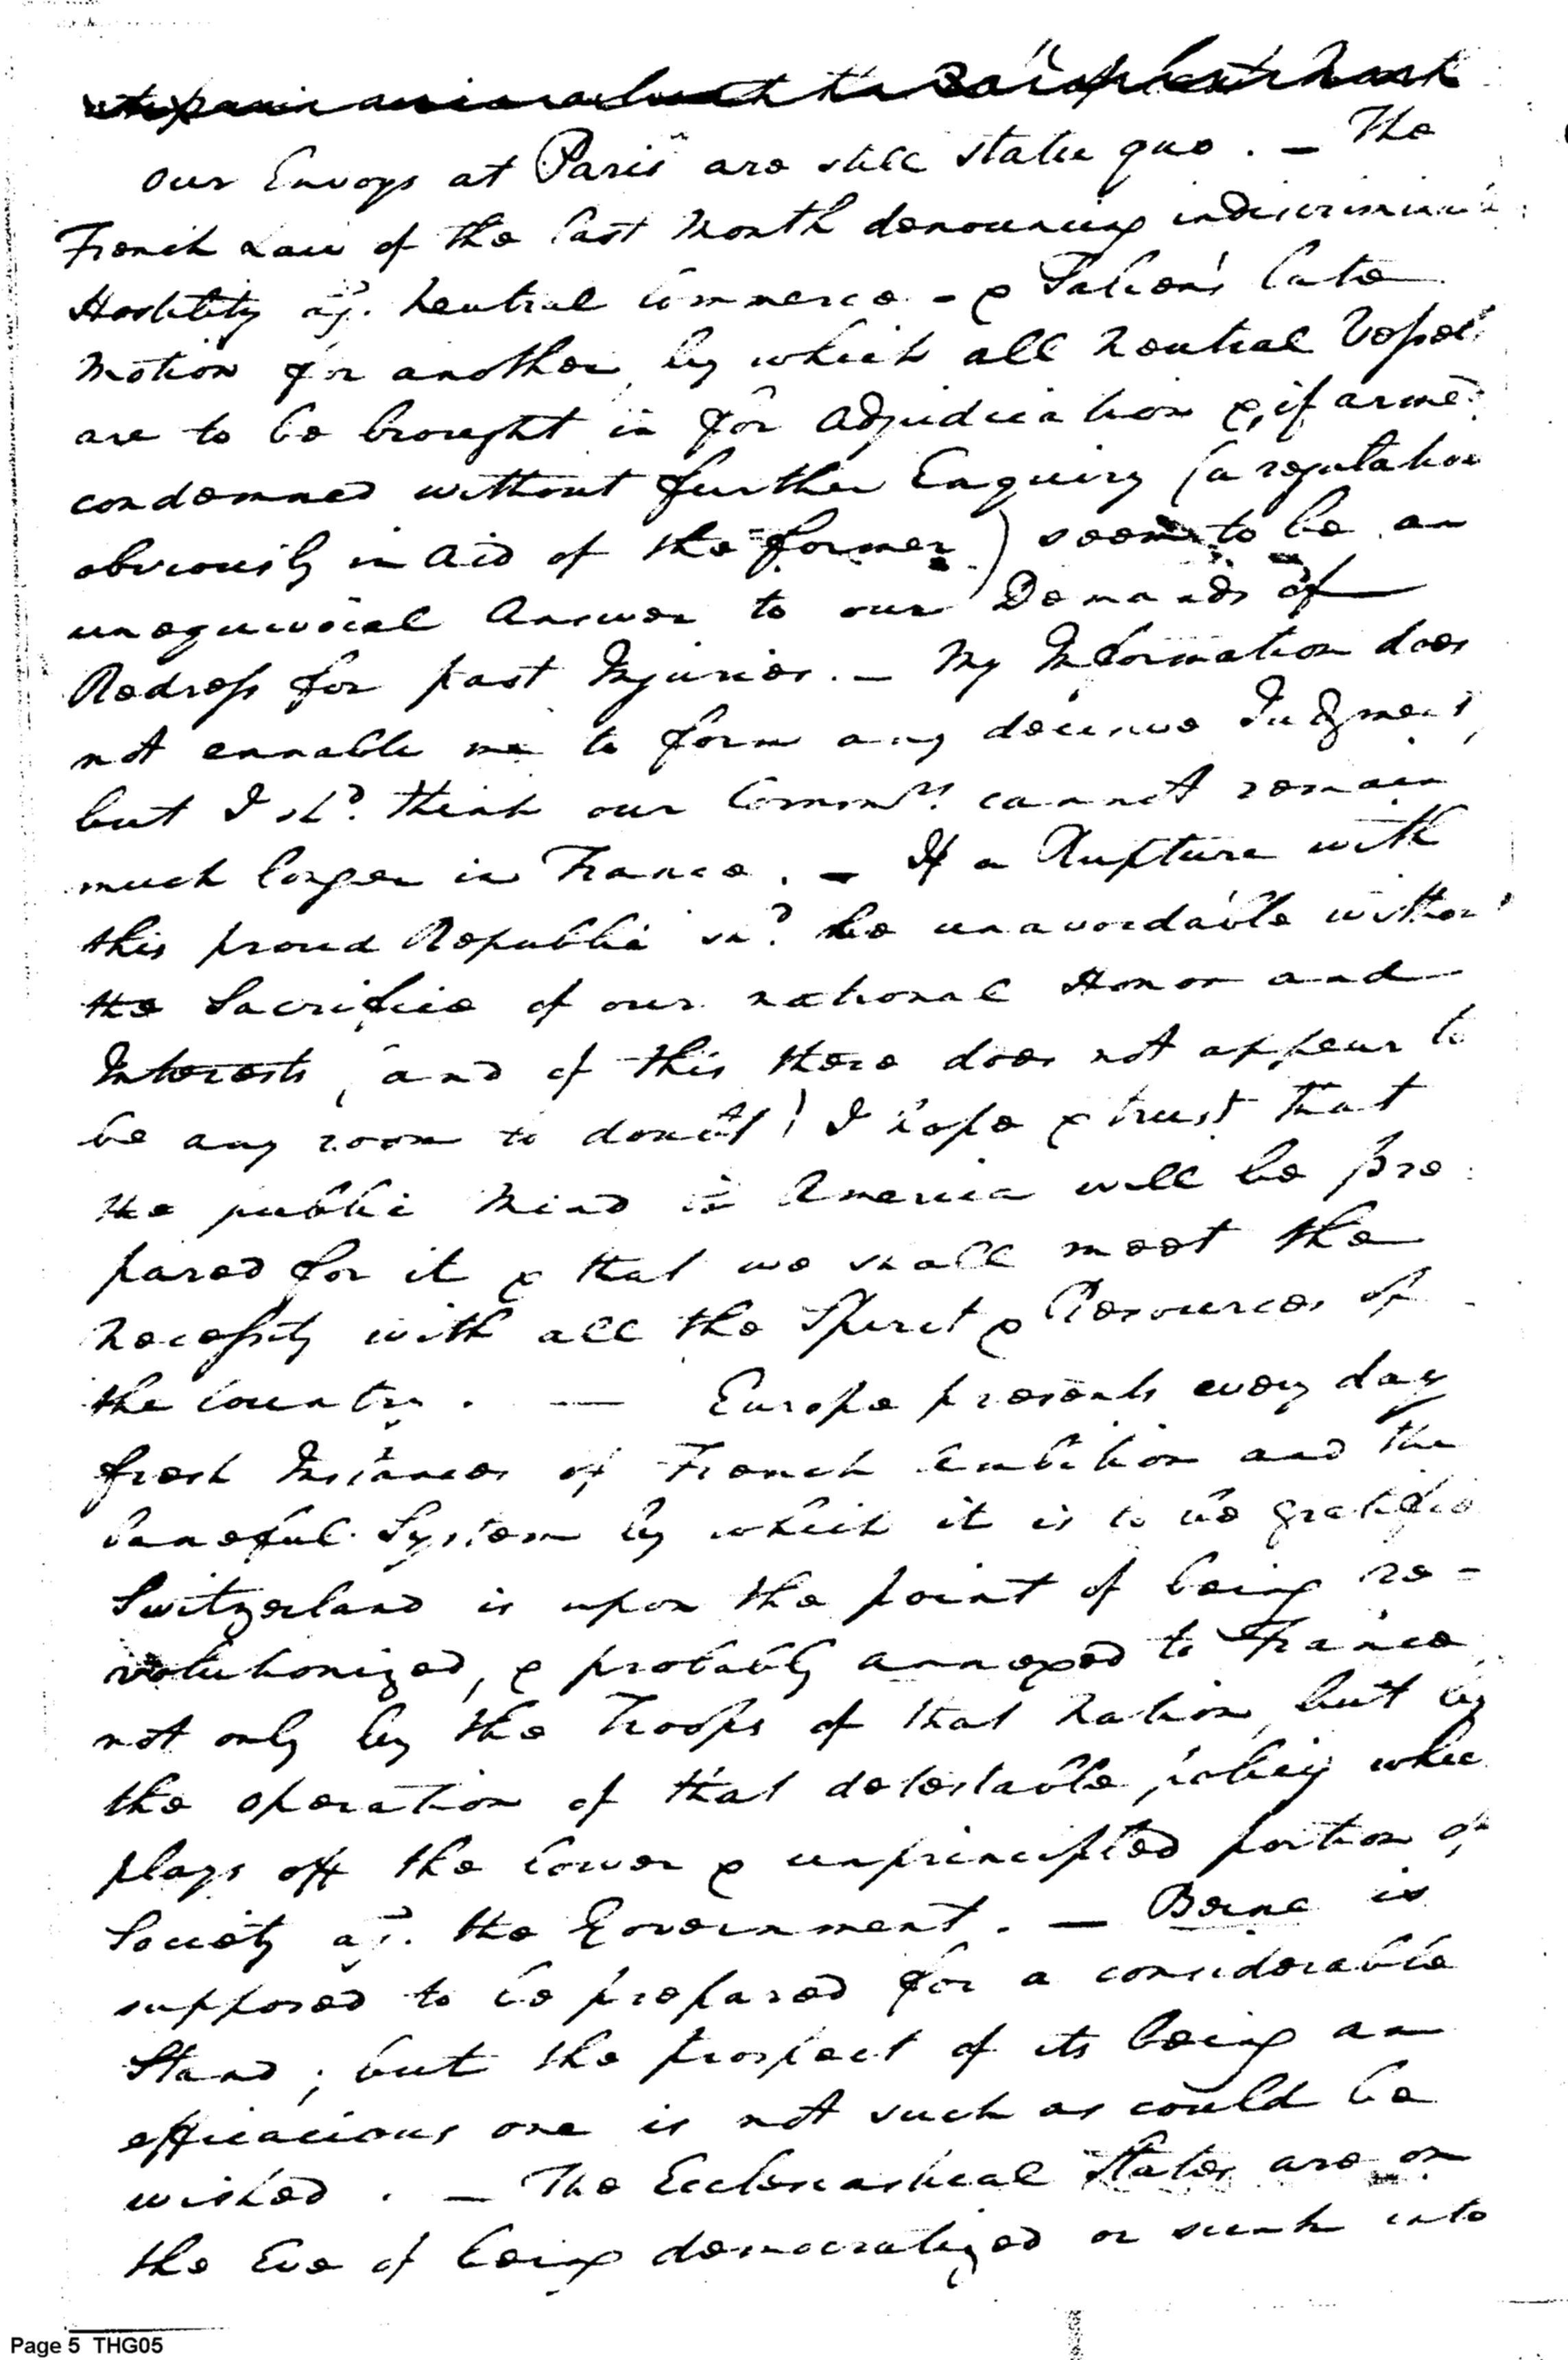 our Envoys at Paris are still statu quo. — The
French Law of the last Month denouncing indiscriminate
Hostility agt. neutral Commerce - & late
Motion for another, by which all neutral Vessels
are to be brought in for adjudication &, if armed
condemned without further Enquiry (a regulation
obviously in aid of the former) seems to be an
unequivocal Answer to our Demands of
Redress for past Injuries. — My Information does
not ennable me to form any decisive Judgment,
but I shd. think our Commrs. cannot remain
much longer in France. — If a Rupture with
this proud Republic shd. be unavoidable without
the Sacrifice of our national Honor and
Interests, (and of this there does not appear to
be any room to doubt) I hope & trust that
the public Mind in America will be pre:
pared for it & that we shall meet the
necessity with all the Spirit & Resources of
the Country. — Europe presents every day
fresh Instances of French Ambition and the
baneful System by which it is to be gratified
Switzerland is upon the point of being re-
volutionized, & probably annexed to France,
not only by the Troops of that Nation, but by
the operation of that detestable policy which
plays off the lower & unprincipled portion of
Society agt. the Government. — Berne is
supposed to be prepared for a considerable
Stand; but the prospect of its being an
efficacious one is not such as could be
wished. — The Ecclesiastical States are on
the Eve of being democratized or sunk into
Page 5 THG05